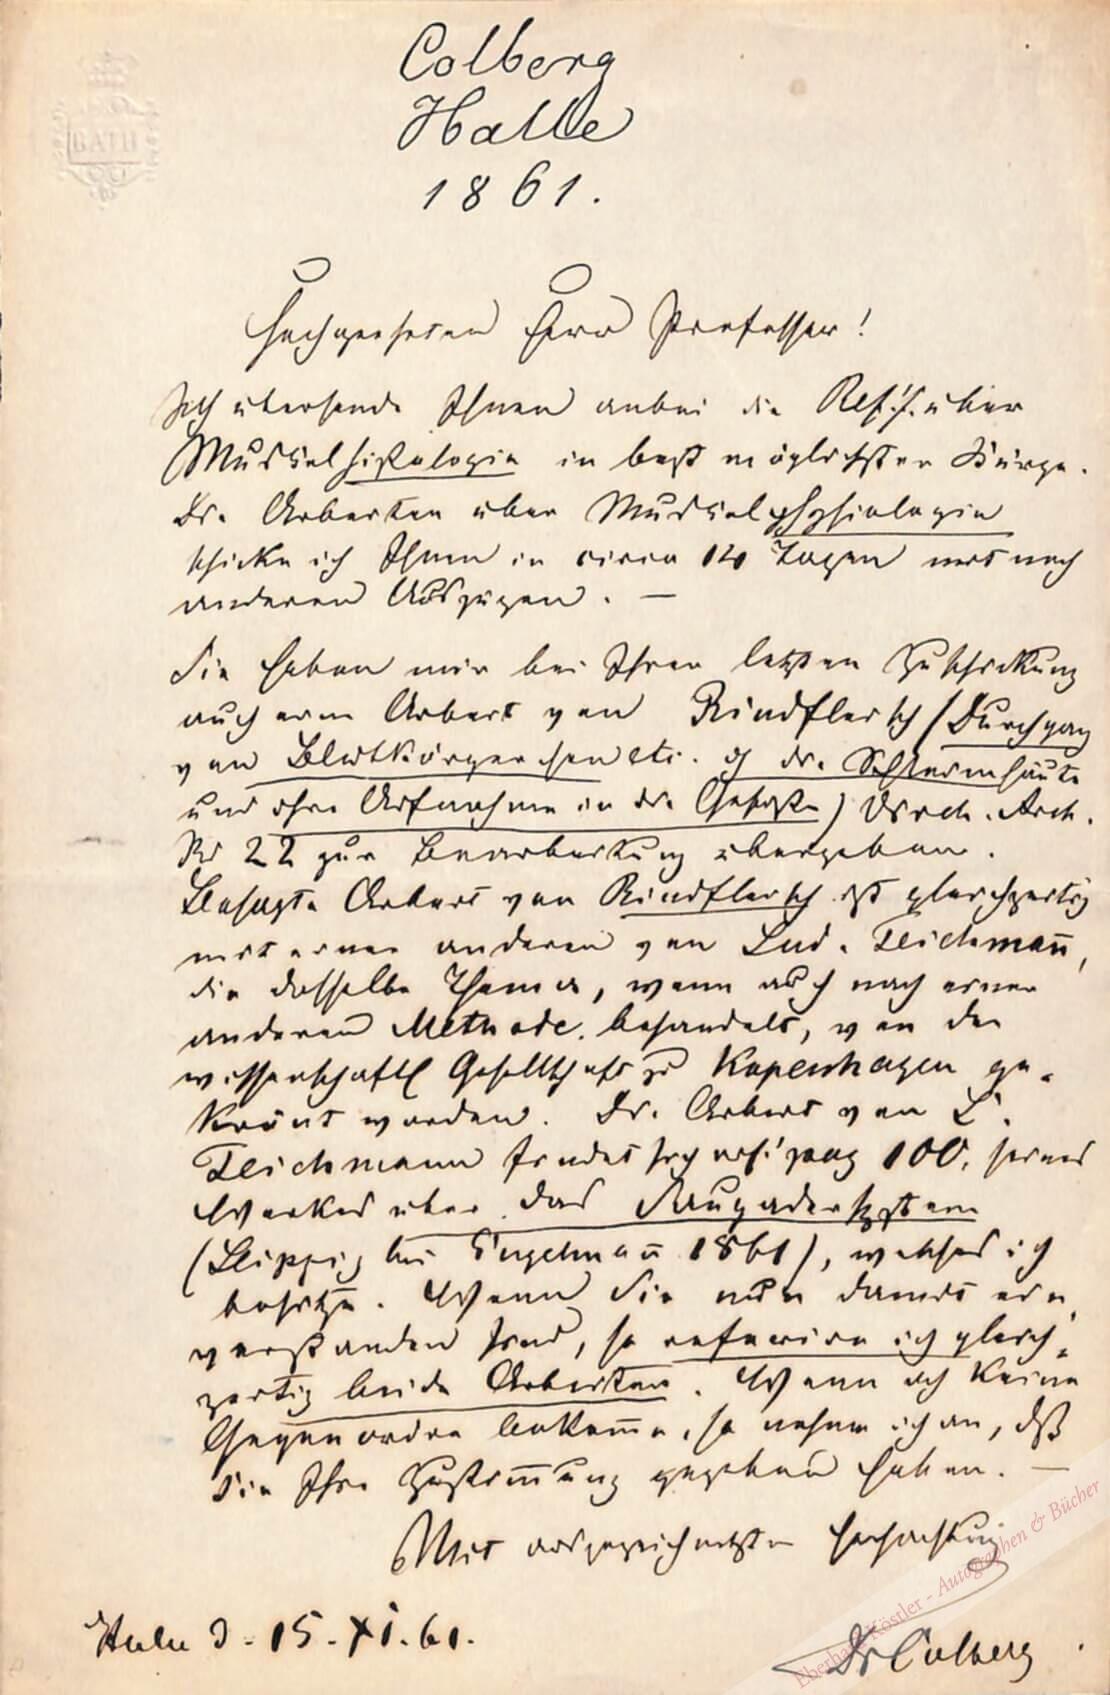 BATH
Colberg
Halle
1861.
Hochgeehrten Herr Professor!
Ich übersende Ihnen anbei die Ref. f. über
Muskelhistologie in best möglichster Kürze.
Die Arbeiten über Muskelphysiologie
schicke ich Ihnen in circa 14 Tagen mit noch
anderen Auszügen. —
Sie haben mir bei Ihrer letzten Zuschickung
auch eine Arbeit von Rindfleisch (Durchgang
von Blutkörperchen etc. d die Schleimhäute
und ihre Aufnahme in die Gefäße) Virch. Arch.
Bd 22 zur Bearbeitung übergeben.
Besagte Arbeit von Rindfleisch ist gleichzeitig
mit einer anderen von Lud. Teichmañ,
die dasselbe Thema, wenn auch nach einer
anderen Methode behandelt, von der
wissenschaftl Gesellschaft zu Kopenhagen ge-
krönt worden. Die Arbeit von L.
Teichmann findet sich auf pag 100. seines
Werkes über das Saugadersystem
(Leipzig bei Engelmañ 1861), welches ich
besitze. Wenn Sie nun damit ein
verstanden sind, so referire ich gleich-
zeitig beide Arbeiten. Wenn ich keine
Gegenordre bekom̄e, so nehme ich an, dß
Sie Ihre Zustim̄ung gegeben haben. —
Mit ausgezeichnetster Hochachtung
Halle d. 15. XI. 61.
Dr Colberg
Eberhard Köstler - Autographen & Bücher